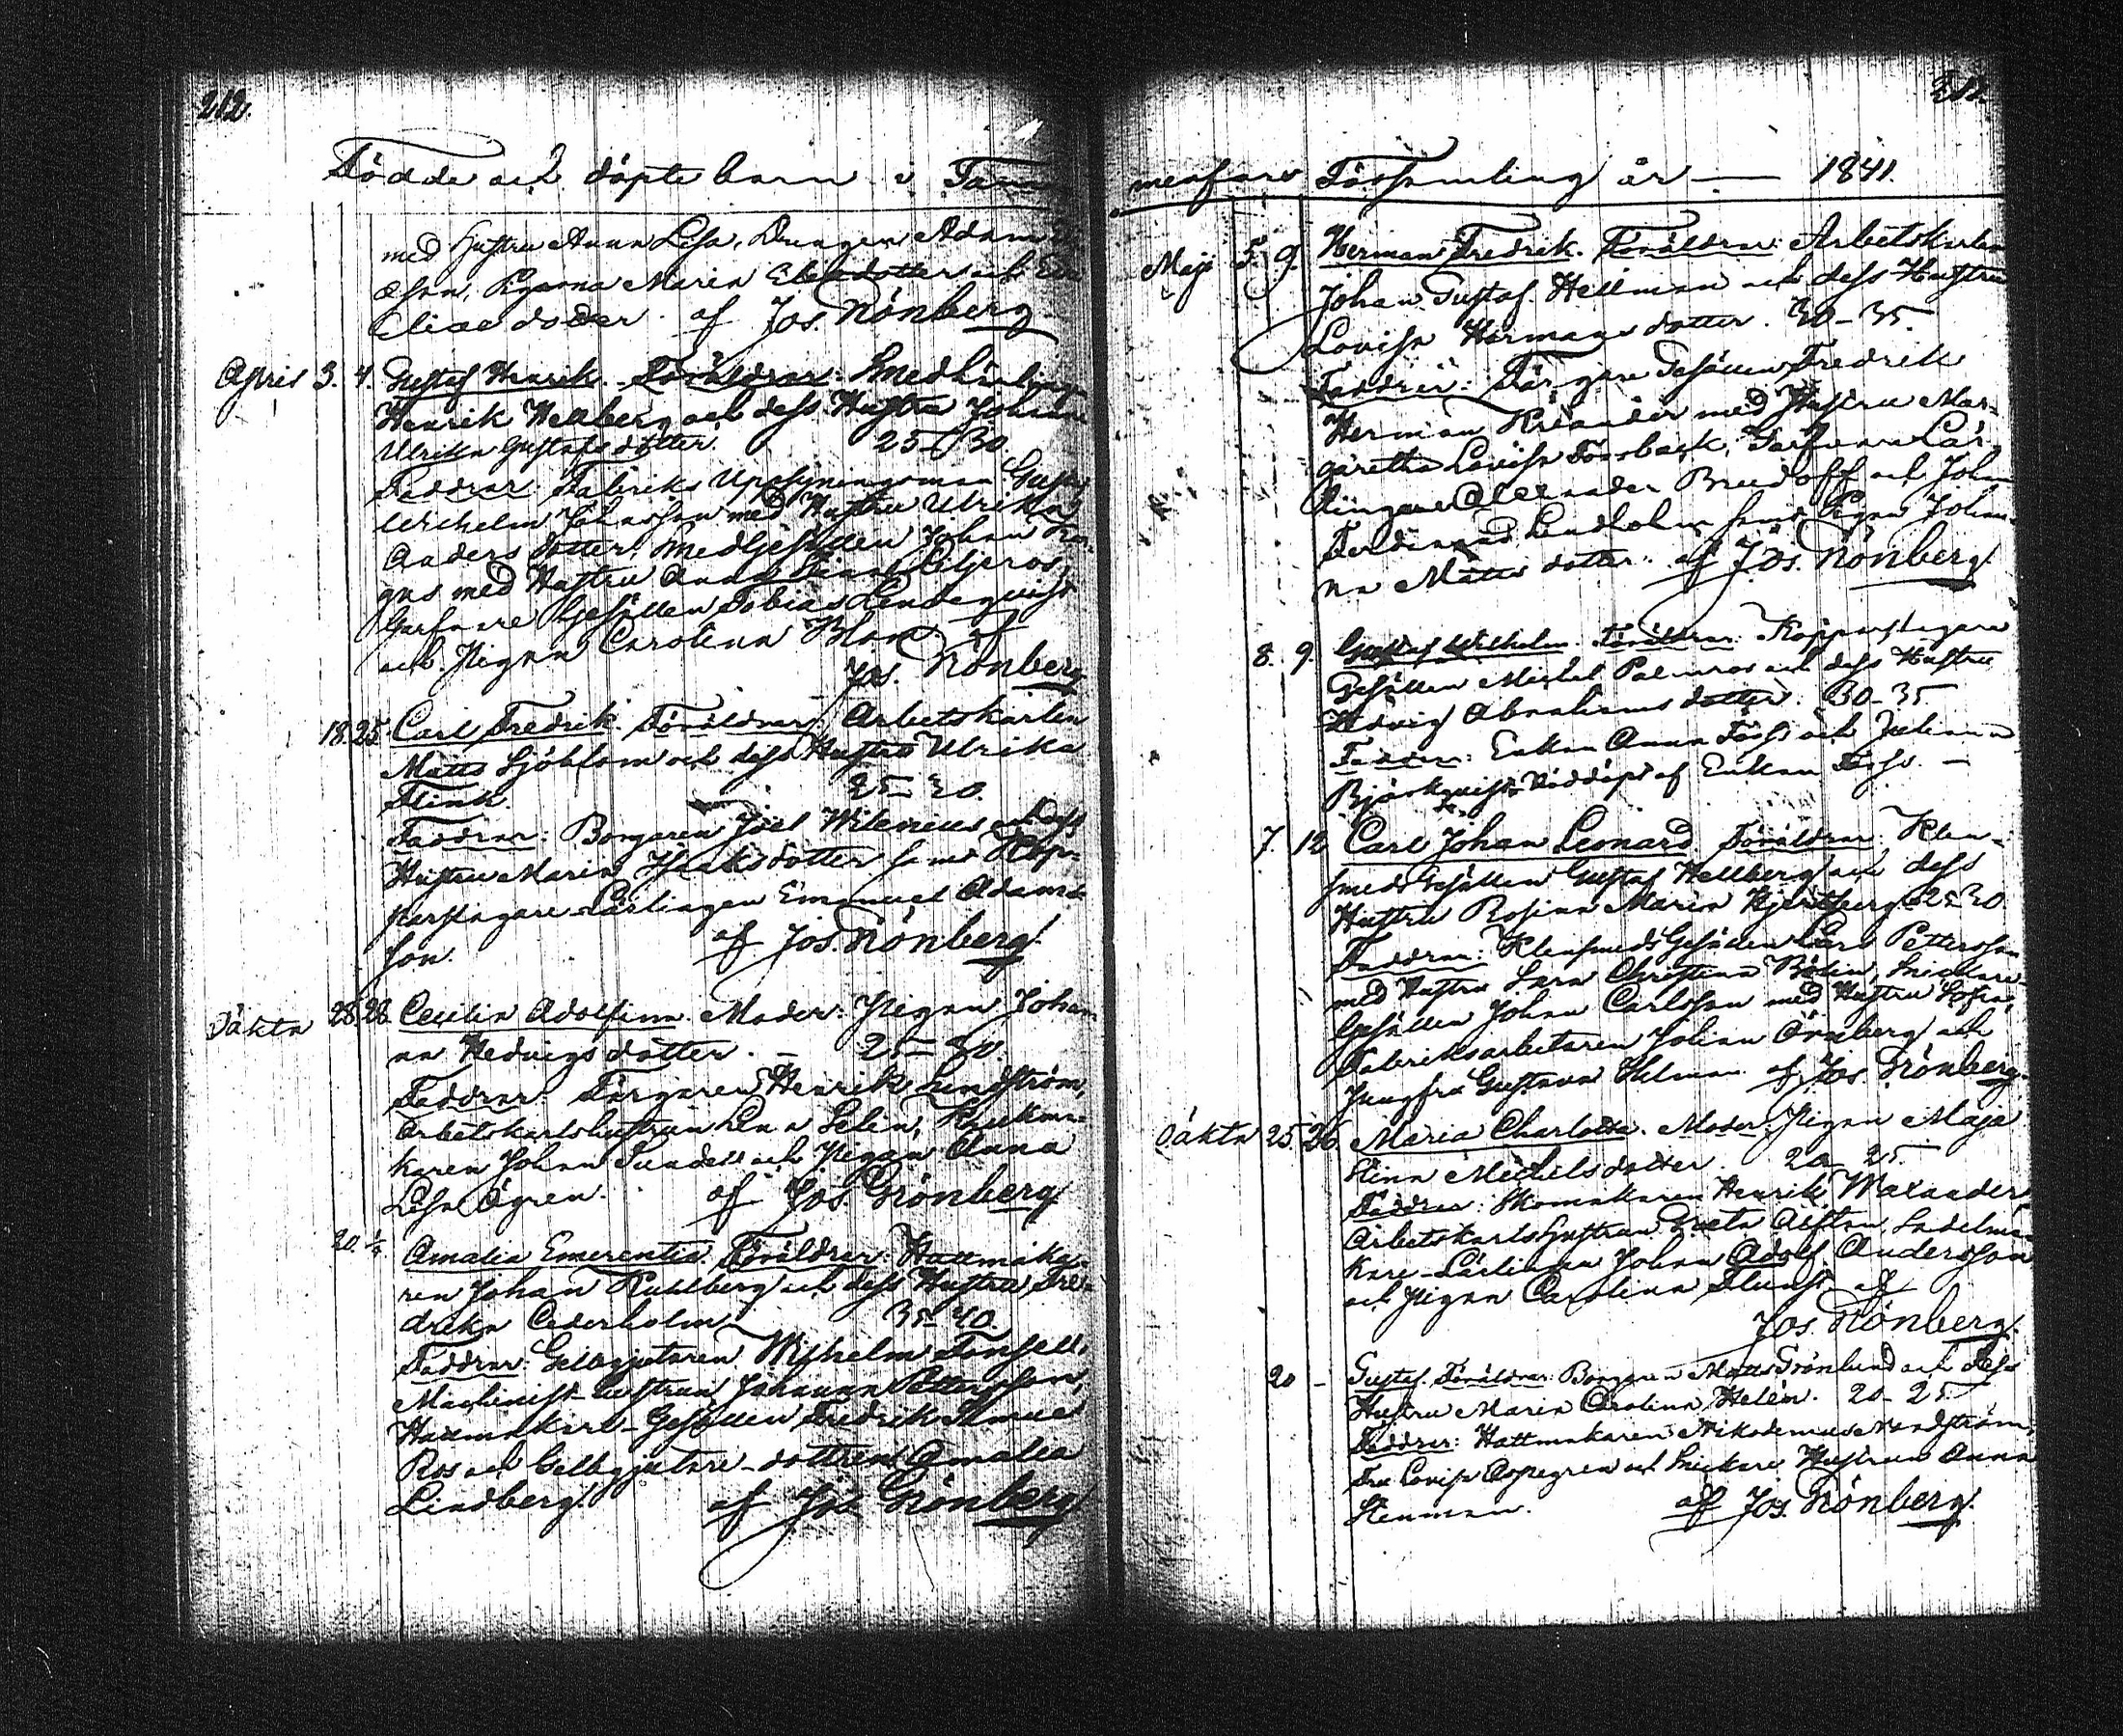 212.
Födde och döpte barn i Tam
med Hustru Anna Lisa, Drengen Adam
son, Pigorna Maria Eliædotter och
Eliædotter. af Jos. Grönberg
April 3. 4. Gustaf Henrik. Föräldrar: Smedlärlingen
Henrik Hellberg och dess Hustru Johanna
Ulrika Gustafsdotter. 25-30.
Faddrar: Fabriks Uppsyningsman Gustaf
Wilhelm Johansson med Hustru Ulrika
Andersdotter, Smedgesällen Johan
med Hustru Anna Stina Liljeros,
Garfvare Gesällen Tobias Lindeqvist
och Pigan Carolina Blom af
Jos. Grönberg
18. 25. Carl Fredrik. Föräldrar: Arbetskarlen
Matts Sjöblom och dess Hustru Ulrika
Flink. 25-30.
Faddrar: Borgaren Joel Wilenius och dess
Hustru Maria Isaksdotter samt Kop-
parslagare-Lärlingen Emanuel Adams-
son. af Jos. Grönberg
Oäkta 28. 28. Cecilia Adolfina. Moder: Pigan Johan-
na Hedvigsdotter. - 25-30.
Faddrar: Färgaren Henrik Lundström,
Arbetskarlshustrun Lena Selin,
karen Johan Sundell och Pigan Anna
Lisa Ögren. af Jos. Grönberg
20. Amalia Emerentia. Föräldrar: Hattmaka-
ren Johan Kuhlberg och dess Hustru Fre-
drika Cederholm. 35-40.
Faddrar: Gelbgjutaren Wilhelm Fonsell,
Machinist-hustrun Johanna Pettersson,
Hattmakare-Gesällen Fredrik Samuel
Ros och Gelbgjutare-dottren Amalia
Lindberg. af Jos. Grönberg
merfors Församling år — 1841.
Maji 5. 9. Herman Fredrik. Föräldrar: Arbetskarlen
Johan Gustaf Hellman och dess Hustru
Lovisa Hermansdotter. 30-35.
Faddrar: Färgare Gesällen Fredrik
Herman Krëander med Hustru Mar-
garetha Lovisa Forsback, Garfvare Lär-
lingarne Alexander Brudoff och Johan
Ferdinand Lindholm samt Pigan Johan-
na Mattsdotter. af Jos. Grönberg
8. 9. Gustaf Wilhelm. Föräldrar: Kopparslagare
Gesällen Mickel Palmros och dess Hustru
Hedvig Abrahamsdotter. 30-35.
Faddrar: Enkan Anna Forss och Juliana
Björkqvist. Nöddöpt af Enkan Forss. -
7. 12. Carl Johan Leonard. Föräldrar: Klen-
smeds Gesällen Gustaf Hellberg och dess
Hustru Rosina Maria Hjertberg 25-30.
Faddrar: Klensmeds Gesällen Lars Pettersson
med Hustru Sara Christina Bolin, Snickare-
Gesällen Johan Carlsson med Hustru Sofia,
Fabriksarbetaren Johan Örnberg och
Jungfru Gustava Helman. af Jos. Grönberg.
Oäkta 25. 26. Maria Charlotta. Moder: Pigan Maja
Stina Mickelsdotter. 20-25.
Faddrar: Skomakaren Henrik Waxander,
Arbetskarlshustrun Greta Alftan, Sadelma-
kare-Lärlingen Johan Adolf Andersson
och Pigan Carolina af
Jos. Grönberg.
20 - Gustaf. Föräldrar: Borgaren Matts Grönlund och dess
Hustru Maria Carolina Helén. 20-25.
Faddrar: Hattmakaren Nikodemus Nordström,
Fru Lovisa Aspegren och Snickare Hustrun Anna
Stenman. af Jos. Grönberg.